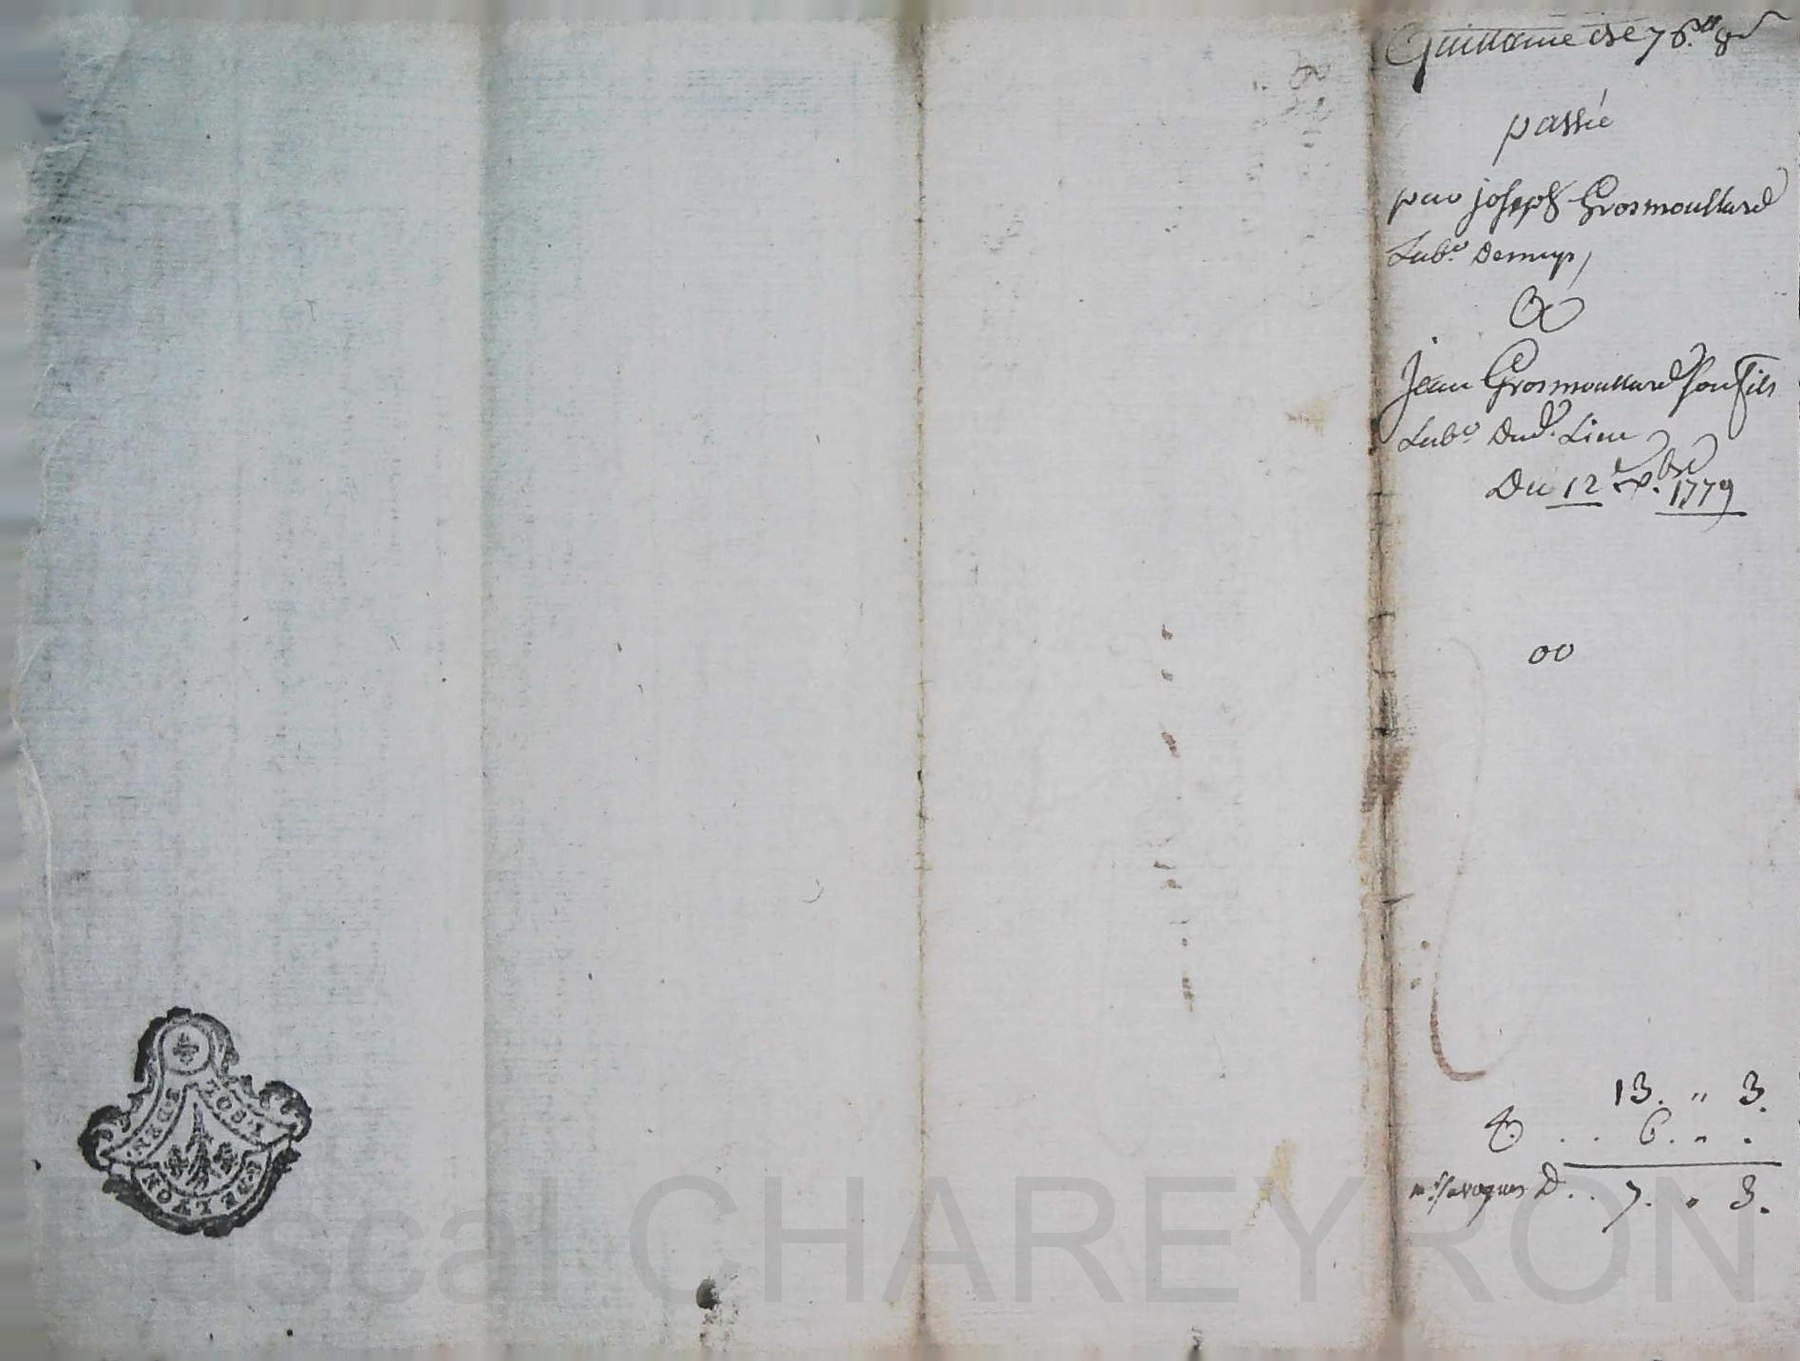 Quittance de 76.ll 8d
passée
par joseph Grosmoullard
Lab.r
a
Jean Grosmoullard son fils
Lab.r dud. Lieu
Du 12 e 1779
00
13. " 3.
6. " .
D. . 7. " 3.
DE LYON
Pascal CHAREYRON